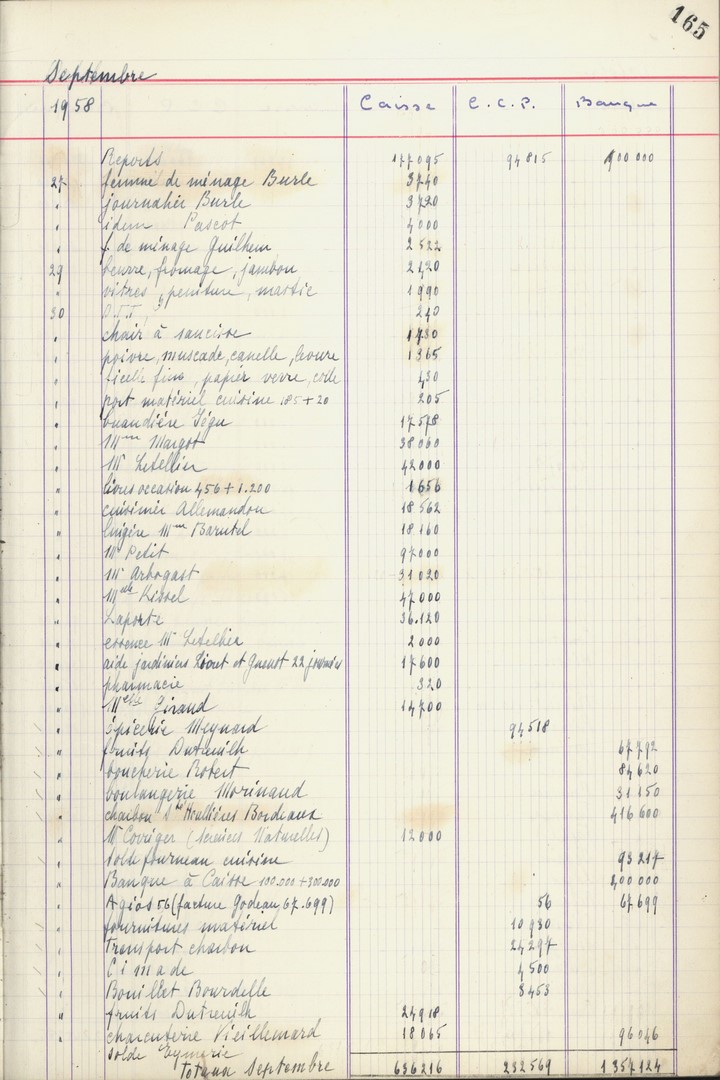 165
Septembre
1958 Caisse C.C.P. Banque
Reports 177095 94815 900 000
27 femme de ménage Burle 3740
" journalier Burle 3720
" idem Pascot 4000
" f. de ménage Guilhem 2522
29 beurre, fromage, jambon 2420
" vitres, peinture, mastic 1990
30 240
" chair à saucisse 1730
" poivre, muscade, canelle, levure 1365
" ficelle fine, papier verre, colle 430
" port matériel cuisine 185+20 205
" buandière Jégu 17578
" Mme Margot 38060
" Mr Letellier 42000
" livres occasion 456+1.200 1656
" cuisinier Allemandon 18562
" lingère Mme Barutel 18160
" Mr Petit 97000
" Mr Arbogast 31020
" Melle Kissel 47000
" Laporte 36.120
" essence Mr Letellier 2000
" aide jardiniers et Guenot 22 journées 17600
" pharmacie 320
" Melle Giraud 14700
" épicerie Meynard 94518
" fruits Dutreuilh 67792
" boucherie Robert 84620
" boulangerie Morinaud 31150
" charbon Sté Houillères Bordeaux 416600
" Mr Corriger (Sciences Naturelles) 12000
" solde fourneau cuisine 93217
" Banque à Caisse 100.000+300.000 200000
" Agios 56 (facture Godeau 67.699) 56 67699
" fournitures matériel 10930
" Transport charbon 24297
" Cimade 4500
" Bouillet Bourdelle 3453
" fruits Dutreuilh 24918
" charcuterie Vieillemard 18065 96046
solde Eymerie
Totaux Septembre 636216 232569 1357124